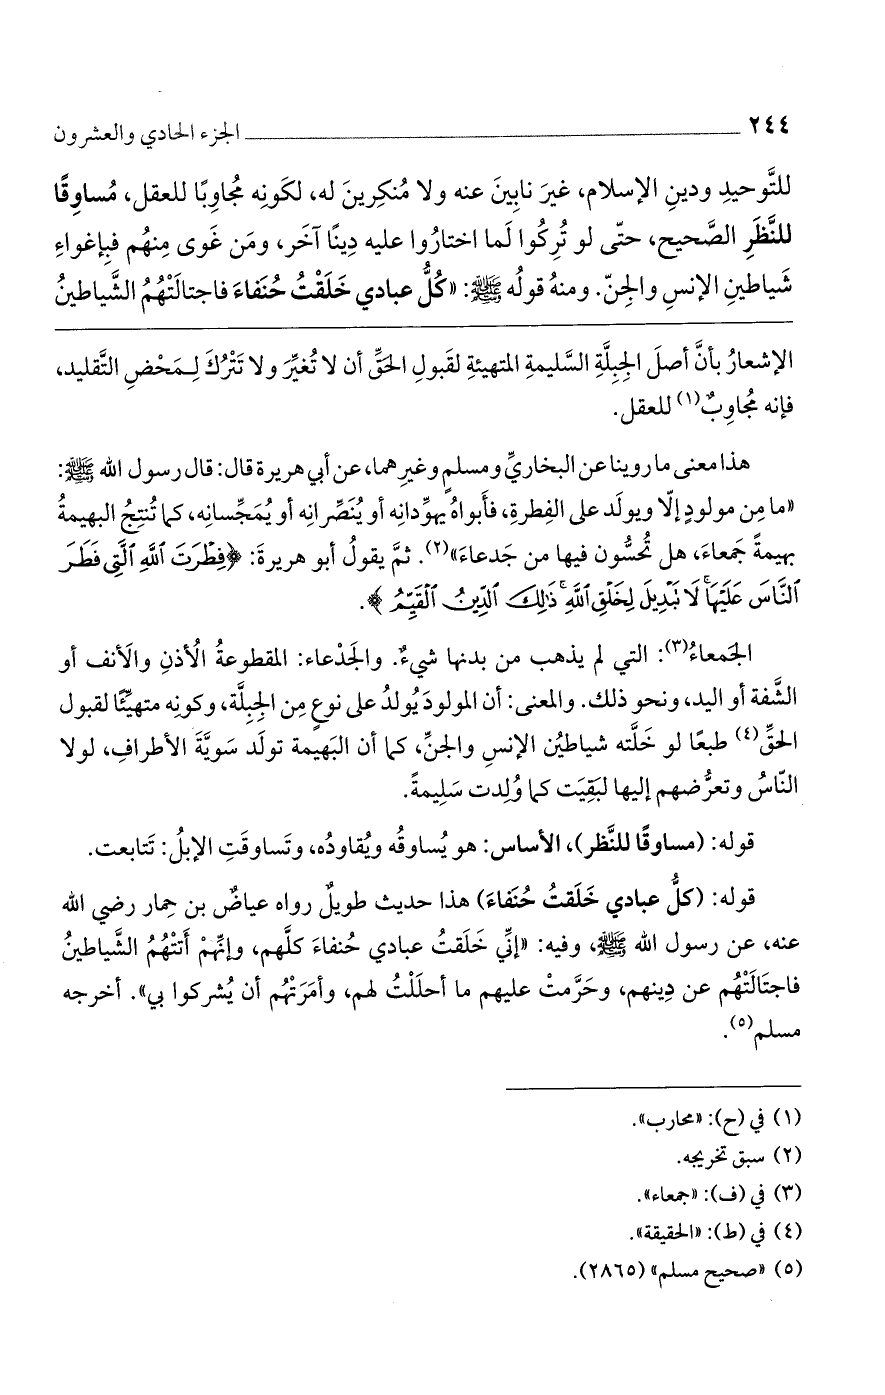 ٢٤٤ ــــــــــــــــــــ الجزء الحادي والعشرون
للتَّوحيدِ ودينِ الإسلام، غيرَ نابِينَ عنه ولا مُنكِرينَ له، لكَونِه مُجاوِبًا للعقل، مُساوِقًا
للنَّظَرِ الصَّحيح، حتّى لو تُرِكُوا لَما اختارُوا عليه دِينًا آخَر، ومَن غَوى مِنهُم فبِإغواءِ
شَياطينِ الإنسِ والجِنّ. ومنهُ قولُه ﷺ: «كُلُّ عبادي خَلَقْتُ حُنَفاءَ فاجتالَتْهُمُ الشَّياطينُ
الإشعارُ بأنَّ أصلَ الجِبِلَّةِ السَّليمةِ المتهيئةِ لقَبولِ الحَقِّ أن لا تُغيَّرَ ولا تَتْرُكَ لِـمَحْضِ التَّقليد،
فإنه مُجاوِبٌ(١) للعقل.
هذا معنى ما روينا عن البخاريِّ ومسلمٍ وغيرِهما، عن أبي هريرة قال: قال رسول الله ﷺ:
«ما مِن مولودٍ إلّا ويولَد على الفِطرةِ، فأبواهُ يهوِّدانِه أو يُنَصِّرانِه أو يُمَجِّسانِه، كما تُنتِجُ البهيمةُ
بهيمةً جَمعاءَ، هل تُحسُّون فيها من جَدعاءَ»(٢). ثمَّ يقولُ أبو هريرةَ: ﴿فِطْرَتَ ٱللَّهِ ٱلَّتِى فَطَرَ
ٱلنَّاسَ عَلَيْهَا ۚ لَا نَبْدِيلَ لِخَلْقِ ٱللَّهِ ۚ ذَٰلِكَ ٱلدِّينُ ٱلْقَيِّمُ﴾.
الجَمعاءُ(٣): التي لم يذهب من بدنها شيءٌ. والجَدْعاء: المقطوعةُ الأذنِ والأنف أو
الشَّفة أو اليد، ونحو ذلك. والمعنى: أن المولودَ يُولدُ على نوعٍ مِن الجِبِلَّة، وكونِه متهيِّئًا لقبول
الحقِّ(٤) طبعًا لو خَلَّته شياطيْن الإنسِ والجنِّ، كما أن البَهيمة تولَد سَويَّةَ الأطرافِ، لولا
النّاسُ وتعرُّضهم إليها لبَقِيَت كما وُلِدت سَلِيمةً.
قوله: (مساوقًا للنَّظر)، الأساس: هو يُساوقُه ويُقاودُه، وتَساوقَتِ الإبلُ: تَتابعت.
قوله: (كلُّ عبادي خَلَقتُ حُنَفاءَ) هذا حديث طويلٌ رواه عياضٌ بن حِمار رضي الله
عنه، عن رسول الله ﷺ، وفيه: «إنِّي خَلَقتُ عبادي حُنفاءَ كلَّهم، وإنَّهمْ أَتتْهُمُ الشَّياطينُ
فاجتَالَتْهُم عن دِينهم، وحَرَّمتْ عليهم ما أحلَلْتُ لهم، وأمَرَتْهُم أن يُشركوا بي». أخرجه
مسلم(٥).
(١) في (ح): «محارب».
(٢) سبق تخريجه.
(٣) في (ف): «جمعاء».
(٤) في (ط): «الحقيقة».
(٥) «صحيح مسلم» (٢٨٦٥).